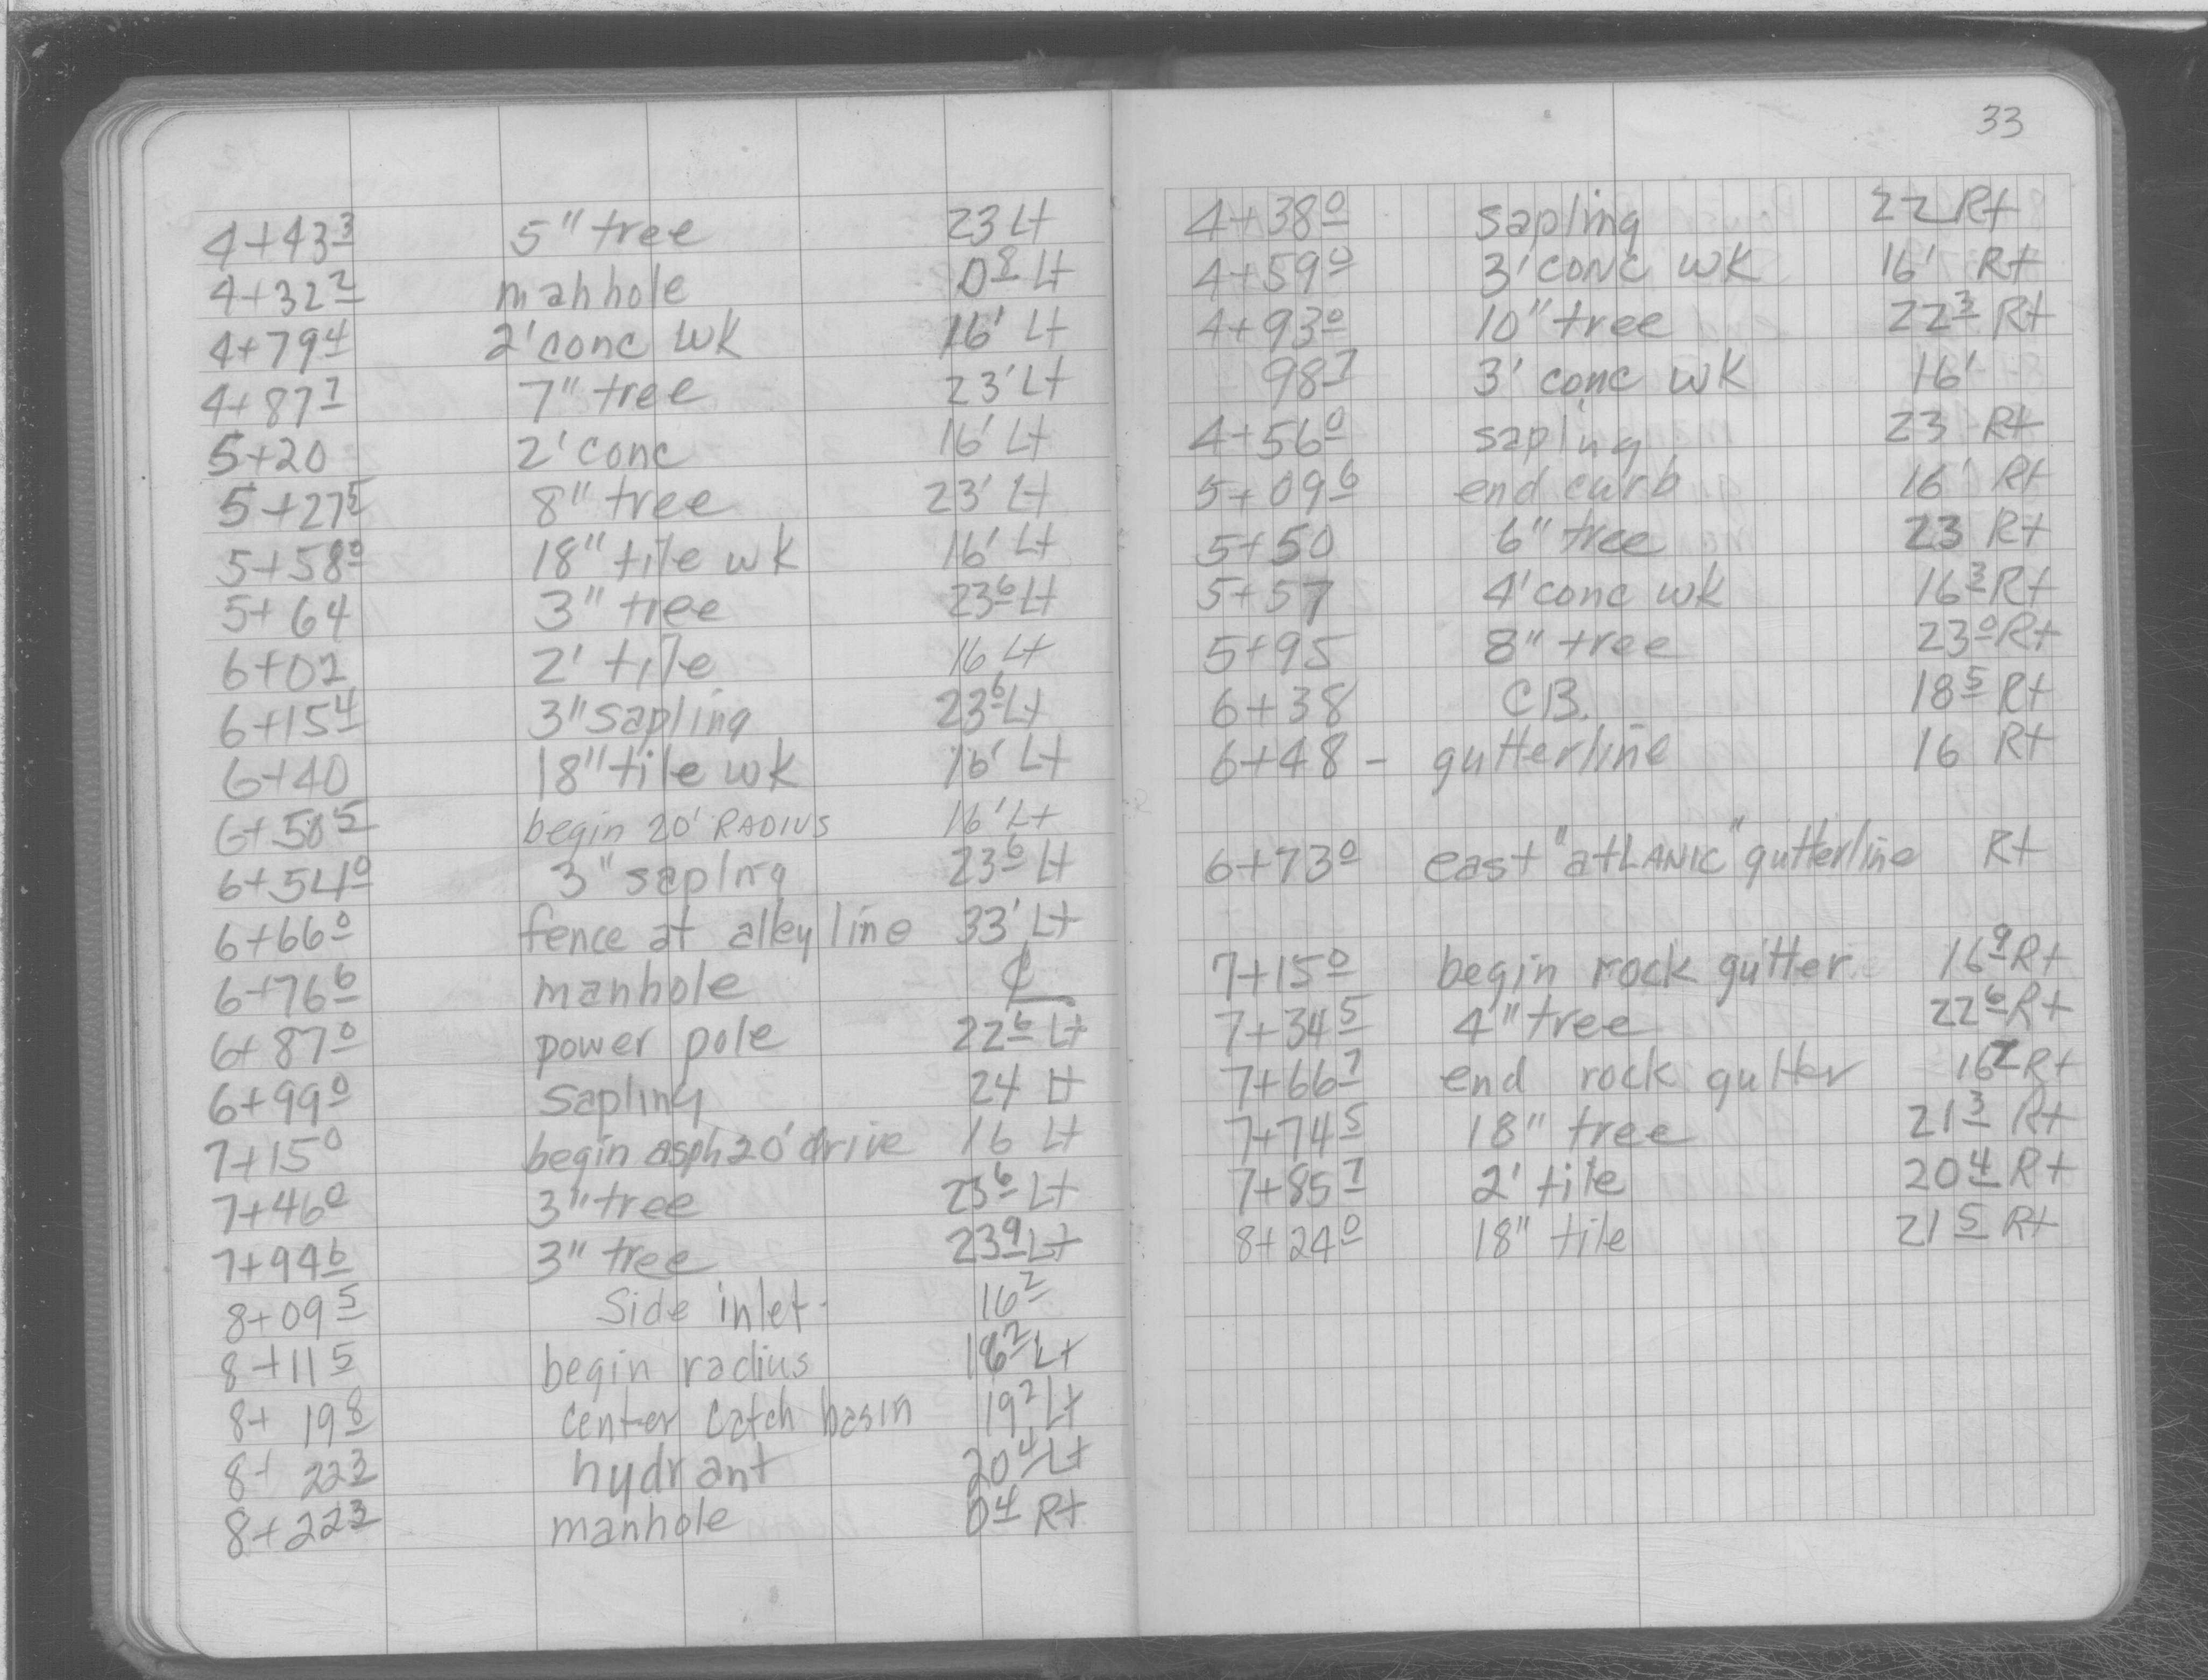 4+43 3 5" tree 23 Lt
4+32 2 manhole 0 8 Lt
4+79 4 2' conc wk 16' Lt
4+87 7 7" tree 23' Lt
5+20 2' conc 16' Lt
5+27 5 8" tree 23' Lt
5+58 0 18" tile wk 16' Lt
5+64 3" tree 23 6 Lt
6+02 2' tile 16 Lt
6+15 4 3" sapling 23 6 Lt
6+40 18" tile wk 16' Lt
6+50 5 begin 20' RADIUS 16' Lt
6+54 0 3" saplng 23 6 Lt
6+66 0 fence at alley line 33' Lt
6+76 6 manhole ℄
6+87 0 power pole 22 6 Lt
6+99 0 sapling 24 Lt
7+15 0 begin asph 20' drive 16 Lt
7+46 0 3" tree 23 6 Lt
7+94 6 3" tree 23 9 Lt
8+09 5 Side inlet 16 2
8+11 5 begin radius 16 2 Lt
8+ 19 8 center catch basin 19 2 Lt
8+ 22 3 hydrant 20 4 Lt
8+22 3 manhole 0 4 Rt
33
4+38 0 sapling 22 Rt
4+59 0 3' conc wk 16' Rt
4+93 0 10" tree 22 3 Rt
98 7 3' conc wk 16'
4+56 0 sapling 23 Rt
5+09 6 end curb 16' Rt
5+50 6" tree 23 Rt
5+57 4' conc wk 16 3 Rt
5+95 8" tree 23 0 Rt
6+38 CB. 18 5 Rt
6+48 - gutterline 16 Rt
6+73 0 east "atLANIC" gutterline Rt
7+15 0 begin rock gutter 16 9 Rt
7+34 5 4" tree 22 6 Rt
7+66 7 end rock gutter 16 2 Rt
7+74 5 18" tree 21 3 Rt
7+85 7 2' tile 20 4 Rt
8+24 0 18" tile 21 5 Rt